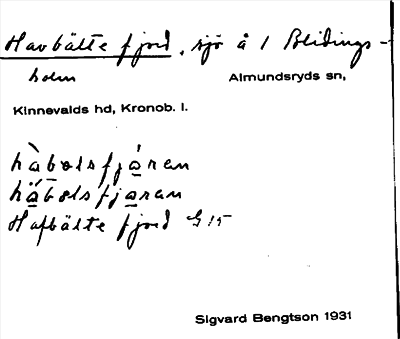 Havbälte fjord, sjö å 1 Blidings-
holm Almundsryds sn,
Kinnevalds hd, Kronob. l.
hàbolsfjáran
hä́bolsfjaran
Hafbälte fjord G 15
Sigvard Bengtson 1931